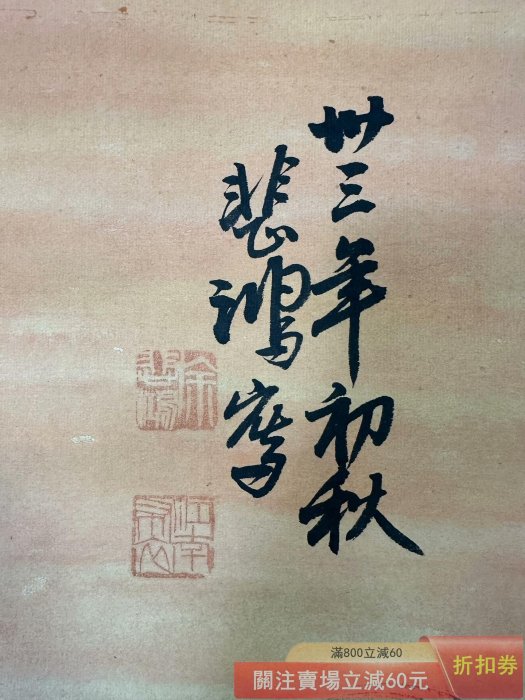 卅三年初秋
悲鴻寫
徐悲鴻
滿800立減60
關注賣場立減60元
折扣券